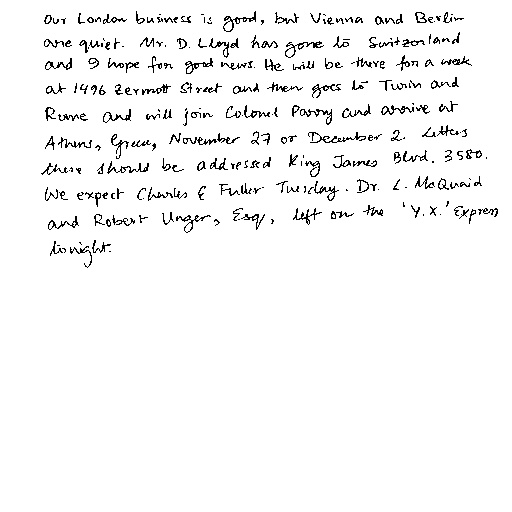 Our London business is good, but Vienna and Berlin
are quiet. Mr. D. Lloyd has gone to Switzerland
and I hope for good news. He will be there for a week
at 1496 Zermott Street and then goes to Turin and
Rome and will join Colonel Parry and arrive at
Athens, Greece, November 27 or December 2. Letters
there should be addressed King James Blvd. 3580.
We expect Charles E Fuller Tuesday. Dr. L. McQuaid
and Robert Unger, Esq., left on the 'Y.X.' Express
tonight.